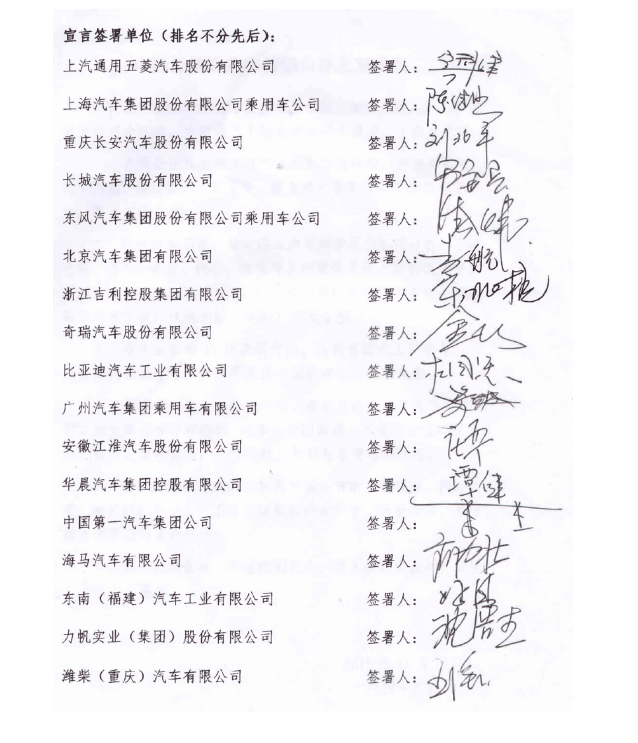 宣言签署单位（排名不分先后）：
上汽通用五菱汽车股份有限公司 签署人：
上海汽车集团股份有限公司乘用车公司 签署人：
重庆长安汽车股份有限公司 签署人：
长城汽车股份有限公司 签署人：
东风汽车集团股份有限公司乘用车公司 签署人：
北京汽车集团有限公司 签署人：
浙江吉利控股集团有限公司 签署人：
奇瑞汽车股份有限公司 签署人：
比亚迪汽车工业有限公司 签署人：
广州汽车集团乘用车有限公司 签署人：
安徽江淮汽车股份有限公司 签署人：
华晨汽车集团控股有限公司 签署人：
中国第一汽车集团公司 签署人：
海马汽车有限公司 签署人：
东南（福建）汽车工业有限公司 签署人：
力帆实业（集团）股份有限公司 签署人：
潍柴（重庆）汽车有限公司 签署人：